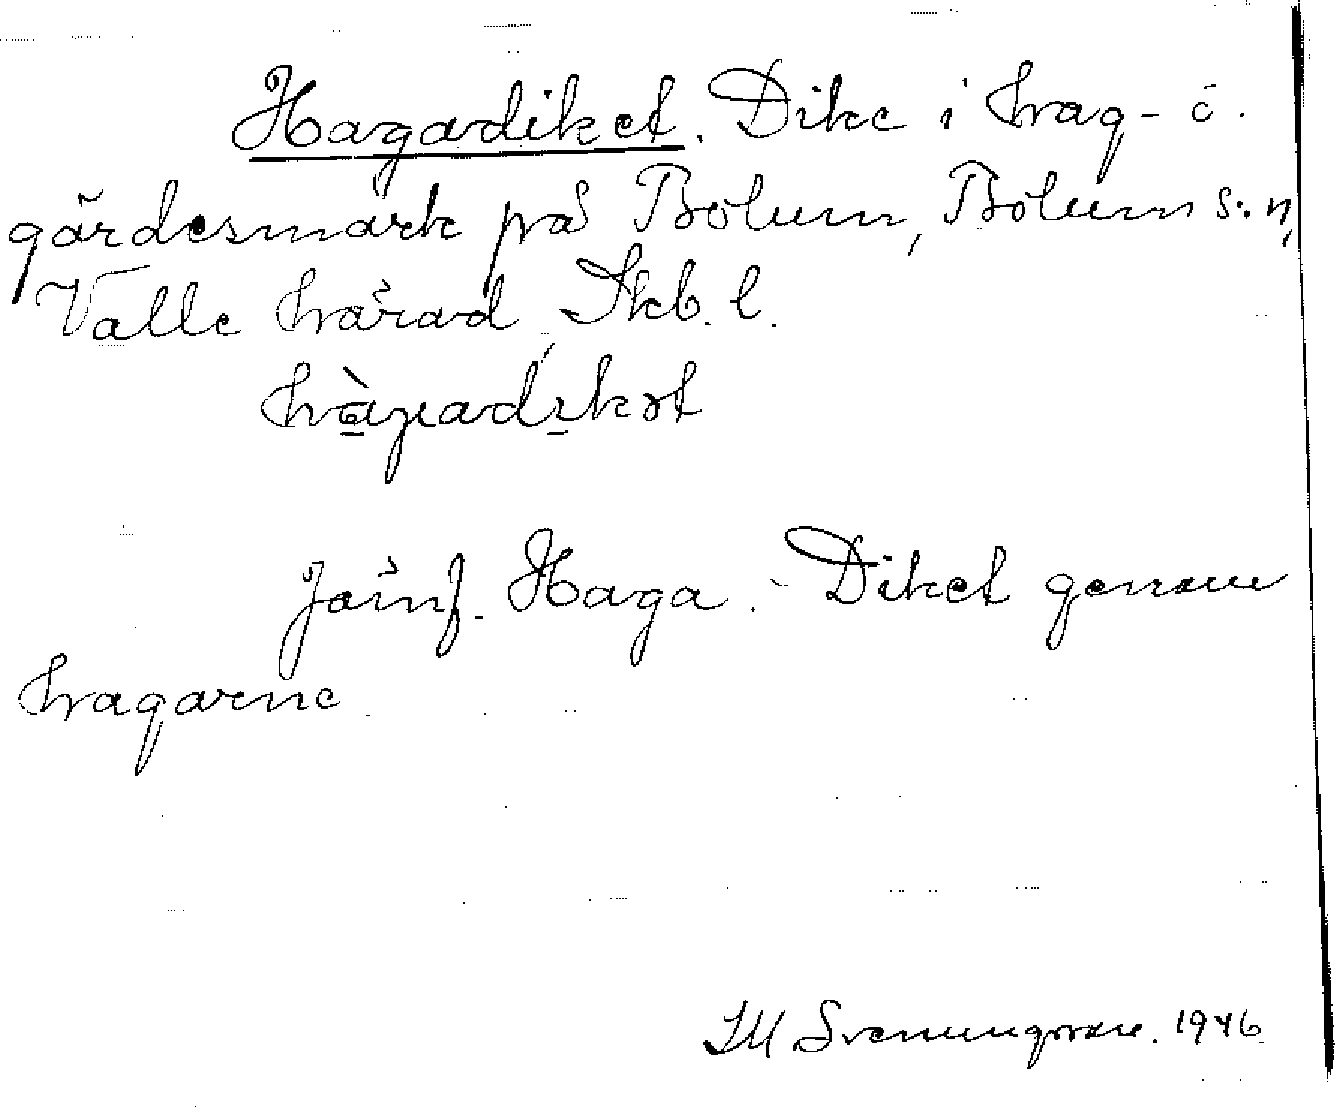 Hagadiket. Dike i hag- o.
gärdesmark på Bolum, Bolum s:n,
Valle härad, Skb. l.
Jämf. Haga. - Diket genom
hagarne
SM Svenungsson. 1946